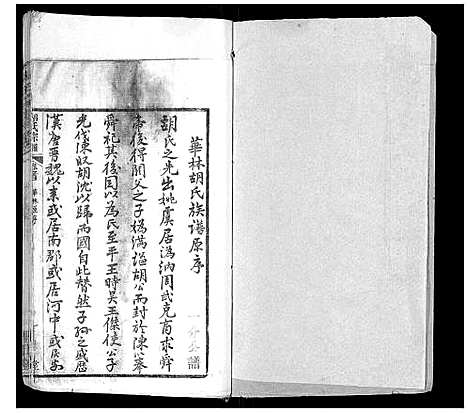 華林胡氏族譜原序
胡氏之先出姚虞居溈汭周武克商求舜
帝後得閼父之子媯滿謚胡公而封於陳以奉
舜祀其後因以為氏至平王時吳王傑使公子
光伐陳㓂胡沈以歸兩國自此替然子孫之盛歷
漢唐晋魏以来或居南郡或居河中或居
胡氏宗譜
華林原序